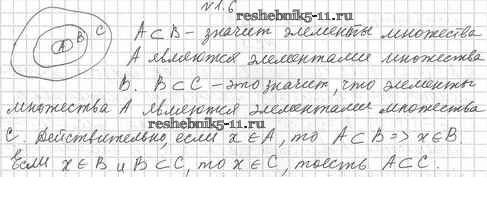 №1.6
reshebnik5-11.ru
A B C A⊂B – значит элементы множества
A являются элементами множества
B. B⊂C – это значит, что элементы
множества A являются элементами множества
reshebnik5-11.ru
C. Действительно, если x∈A, то A⊂B => x∈B
Если x∈B и B⊂C, то x∈C, тоесть A⊂C.